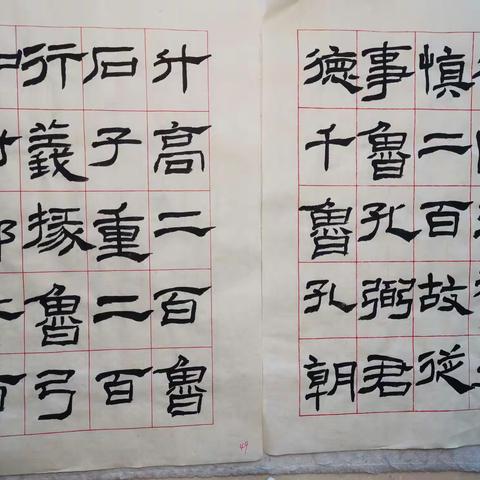 慎二百故從
事魯孔弼君
德千魯孔朝
升高二百魯
石子重二百
行義掾魯弓
44